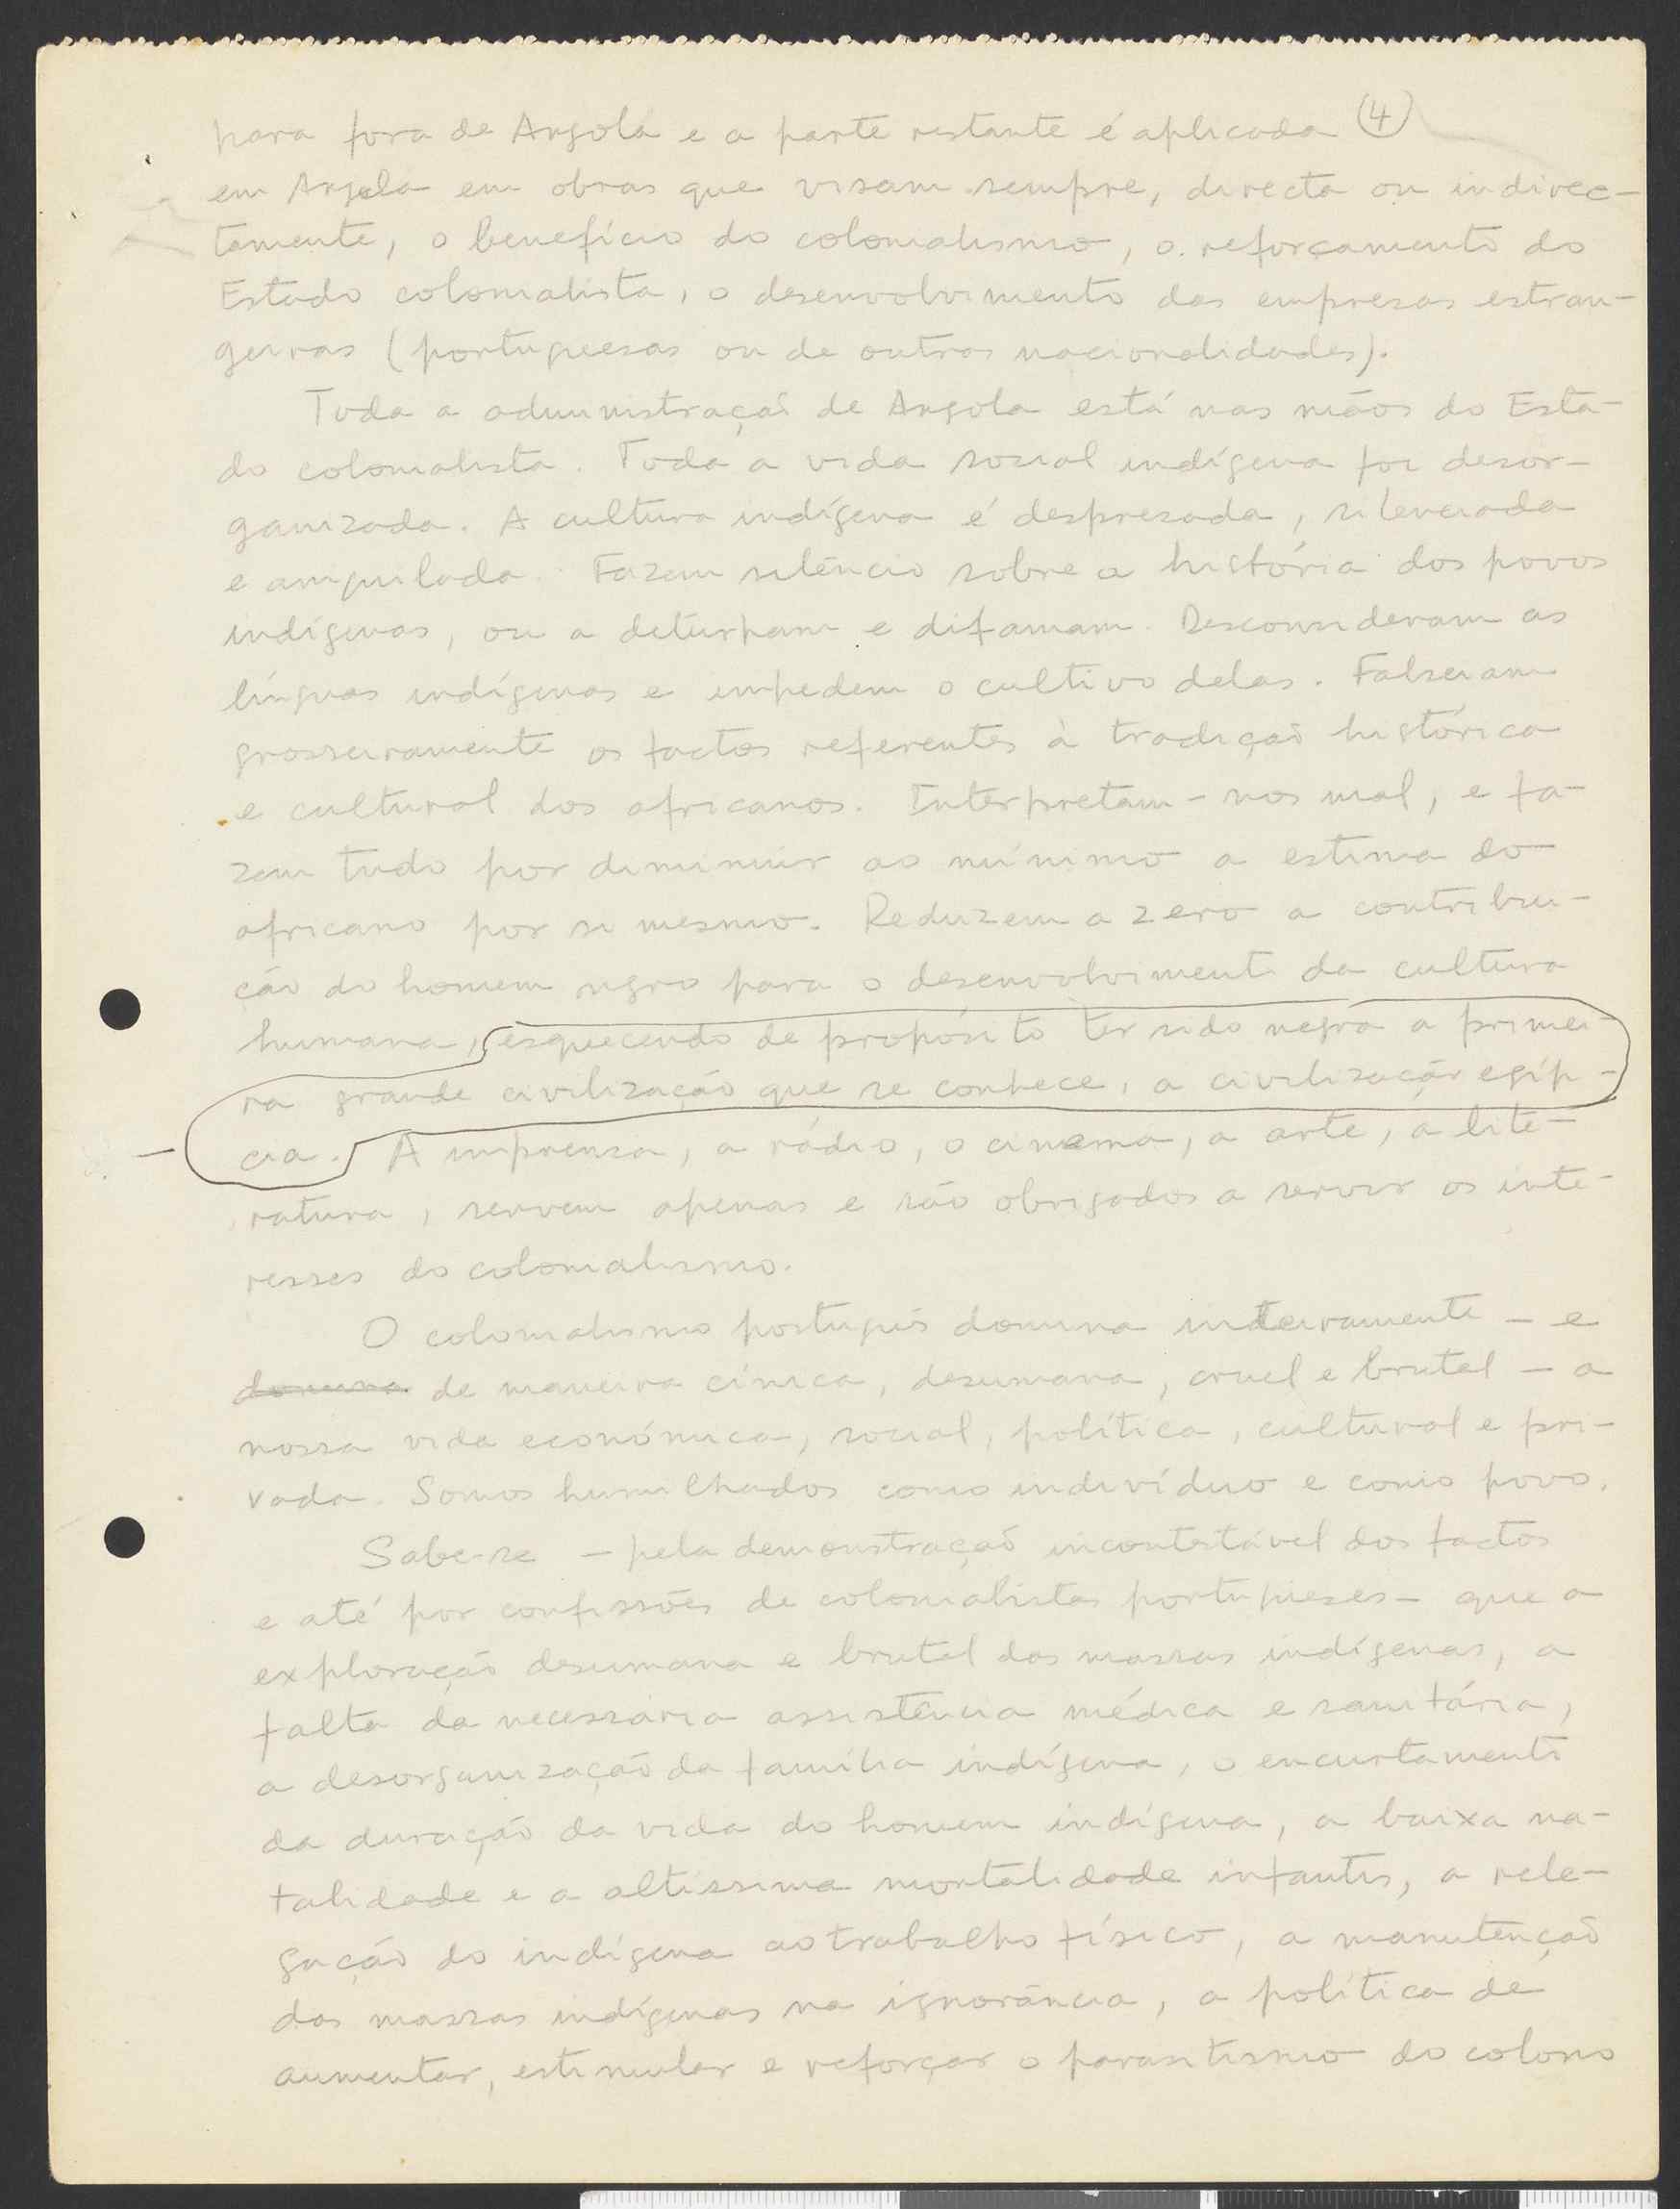 para fora de Angola e a parte restante é aplicada (4)
em Angola em obras que visam sempre, directa ou indirec-
tamente, o benefício do colonialismo, o reforçamento do
Estado colonialista, o desenvolvimento das empresas estran-
geiras (portuguesas ou de outras nacionalidades).
Toda a administração de Angola está nas mãos do Esta-
do colonialista. Toda a vida social indígena foi desor-
ganizada. A cultura indígena é despresada, silenciada
e aniquilada. Fazem silêncio sobre a história dos povos
indígenas, ou a deturpam e difamam. Desconsideram as
línguas indígenas e impedem o cultivo delas. Falseiam
grosseiramente os factos referentes à tradição histórica
e cultural dos africanos. Interpretam-nos mal, e fa-
zem tudo por diminuir ao mínimo a estima do
africano por si mesmo. Reduzem a zero a contribui-
ção do homem negro para o desenvolvimento da cultura
humana, esquecendo de propósito ter sido negra a primei-
ra grande civilização que se conhece, a civilização egíp-
cia. A imprensa, a rádio, o cinema, a arte, a lite-
ratura, servem apenas e são obrigados a servir os inte-
resses do colonialismo.
O colonialismo português domina inteiramente – e
domina de maneira cínica, desumana, cruel e brutal – a
nossa vida económica, social, política, cultural e pri-
vada. Somos humilhados como indivíduo e como povo.
Sabe-se – pela demonstração incontestável dos factos
e até por confissões de colonialistas portugueses – que a
exploração desumana e brutal das massas indígenas, a
falta da necessária assistência médica e sanitária,
a desorganização da família indígena, o encurtamento
da duração da vida do homem indígena, a baixa na-
talidade e a altíssima mortalidade infantis, a rele-
gação do indígena ao trabalho físico, a manutenção
das massas indígenas na ignorância, a política de
aumentar, estimular e reforçar o parasitismo do colono